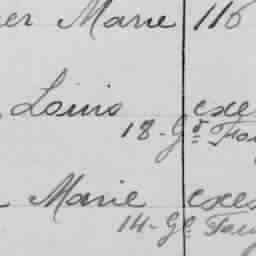 er Marie 116
Louis exe
18 - Gd Fau
Marie exe
14 - Gd Fau